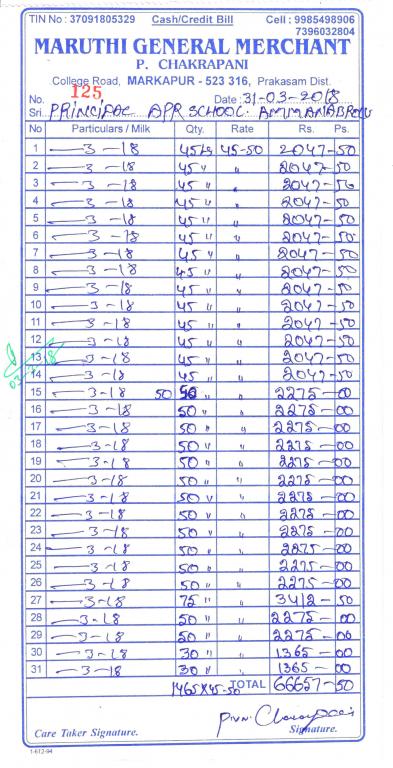 TIN No : 37091805329 Cash/Credit Bill Cell : 9985498906
7396032804
MARUTHI GENERAL MERCHANT
P. CHAKRAPANI
College Road, MARKAPUR - 523 316, Prakasam Dist.
No. 125 Date : 31-03-2018
Sri. PRINCIPAL APR SCHOOL.
No Particulars / Milk Qty. Rate Rs. Ps.
1 —3-18 45 45-50 2047-50
2 —3-18 45 " " 2047-50
3 —3-18 45 " " 2047-50
4 —3-18 45 " " 2047-50
5 —3-18 45 " " 2047-50
6 —3-18 45 " " 2047-50
7 —3-18 45 " " 2047-50
8 —3-18 45 " " 2047-50
9 —3-18 45 " " 2047-50
10 —3-18 45 " " 2047-50
11 —3-18 45 " " 2047-50
12 —3-18 45 " " 2047-50
13 —3-18 45 " " 2047-50
14 —3-18 45 " " 2047-50
15 —3-18 50 " " 2275-00
16 —3-18 50 " " 2275-00
17 —3-18 50 " " 2275-00
18 —3-18 50 " " 2275-00
19 —3-18 50 " " 2275-00
20 —3-18 50 " " 2275-00
21 —3-18 50 " " 2275-00
22 —3-18 50 " " 2275-00
23 —3-18 50 " " 2275-00
24 —3-18 50 " " 2275-00
25 —3-18 50 " " 2275-00
26 —3-18 50 " " 2275-00
27 —3-18 75 " " 3412-50
28 —3-18 50 " " 2275-00
29 —3-18 50 " " 2275-00
30 —3-18 30 " " 1365-00
31 —3-18 30 " " 1365-00
1465X45-50 TOTAL 66657-50
Care Taker Signature. Signature.
1-612-94